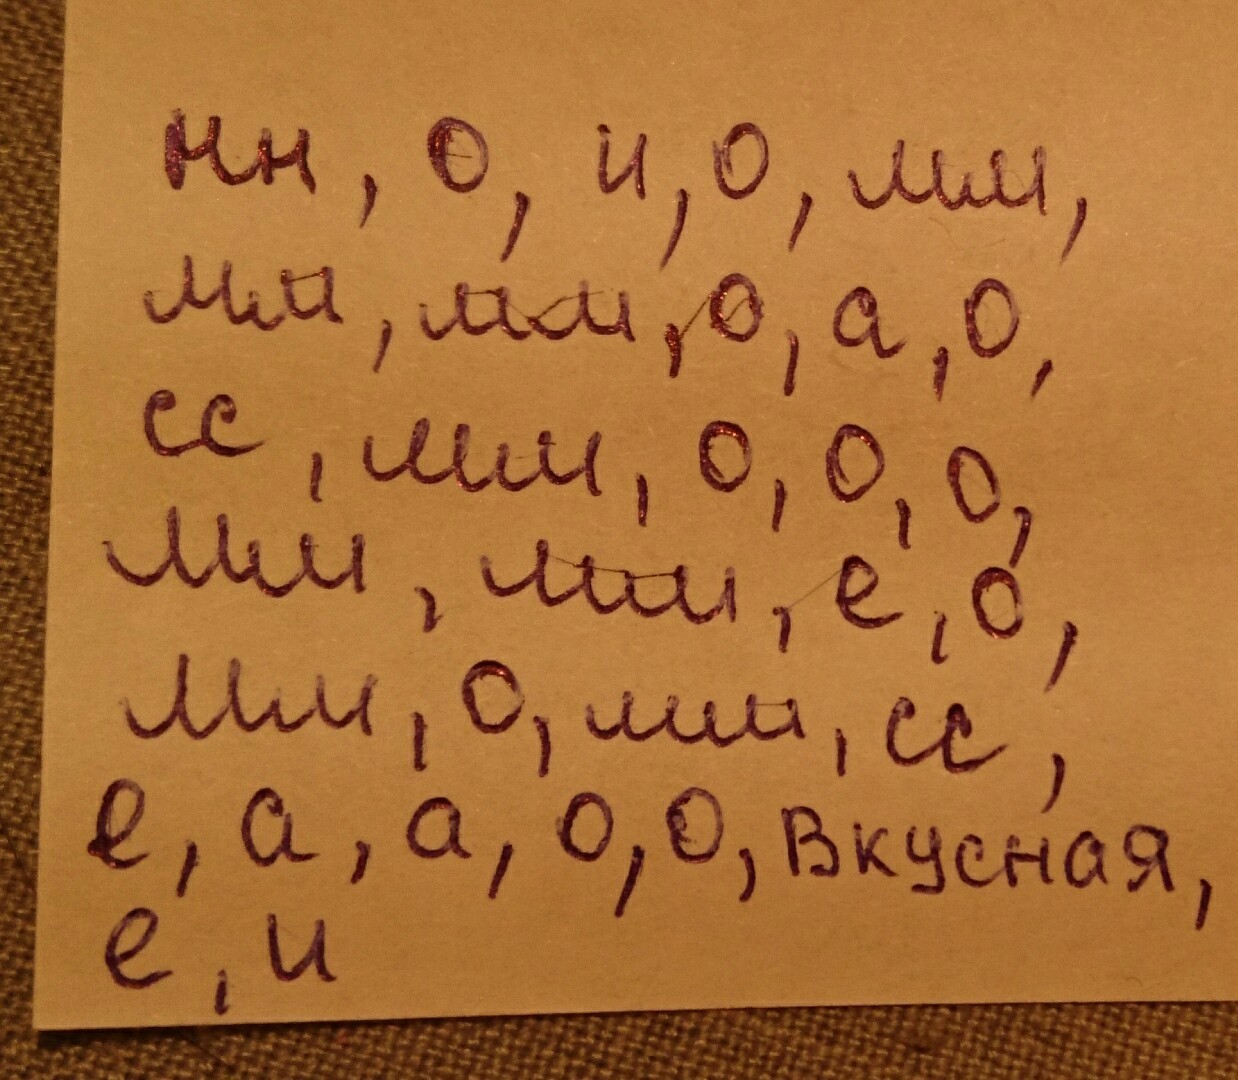 нн, о, и, о, мм,
мм, мм, о, а, о,
сс, мм, о, о, о,
мм, мм, е, о,
мм, о, мм, сс,
е, а, а, о, о, вкусная,
е, и